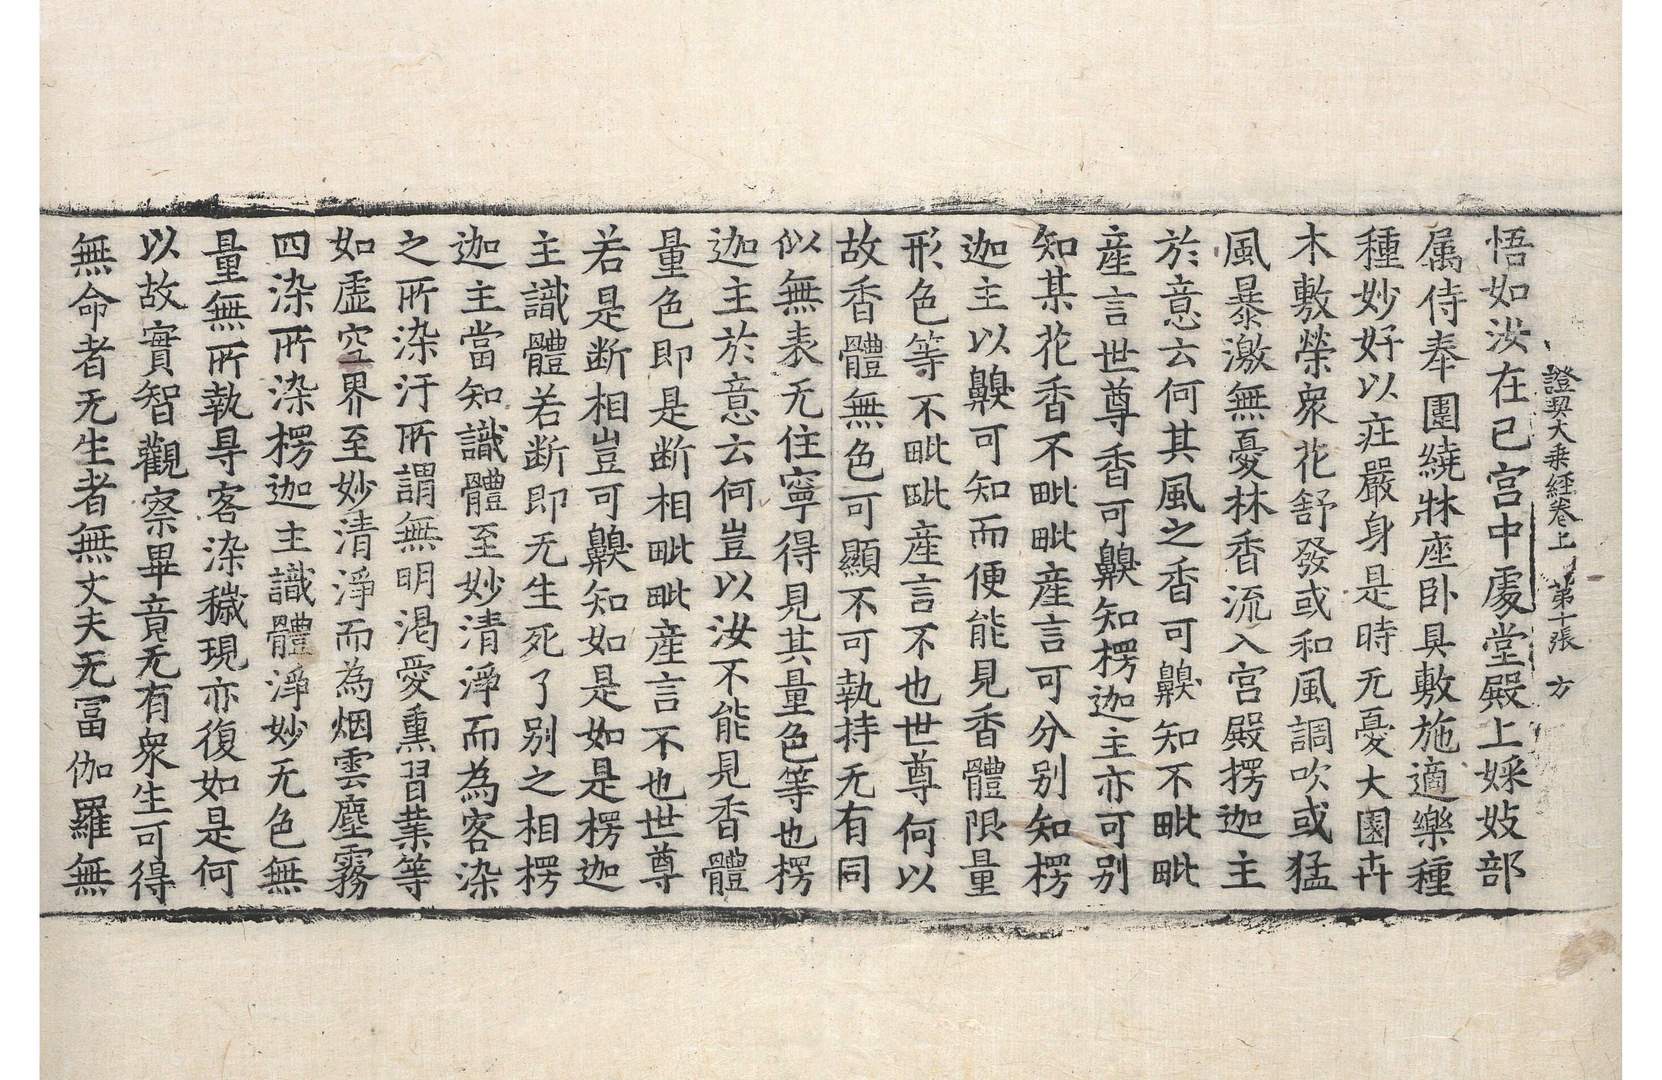 證契大乘經卷上 第十張 方
悟如汝在已宮中處堂殿上婇妓部
属侍奉圍繞牀座卧具敷施適樂種
種妙好以在嚴身是時无憂大園卉
木敷榮衆花舒發或和風調吹或猛
風暴激無憂林香流入宮殿楞迦主
於意云何其風之香可齅知不毗毗
産言世尊香可齅知楞迦主亦可别
知某花香不毗毗産言可分别知楞
迦主以齅可知而便能見香體限量
形色等不毗毗産言不也世尊何以
故香體無色可顯不可執持无有同
似無表无住寧得見其量色等也楞
迦主於意云何豈以汝不能見香體
量色即是断相毗毗産言不也世尊
若是断相豈可齅知如是如是楞迦
主識體若断即无生死了别之相楞
迦主當知識體至妙清淨而為客染
之所染汙所謂無明渴愛熏習業等
如虛空界至妙清淨而為烟雲塵霧
四染所染楞迦主識體淨妙无色無
量無所執㝵客染穢現亦復如是何
以故實智觀察畢竟无有衆生可得
無命者无生者無丈夫无冨伽羅無